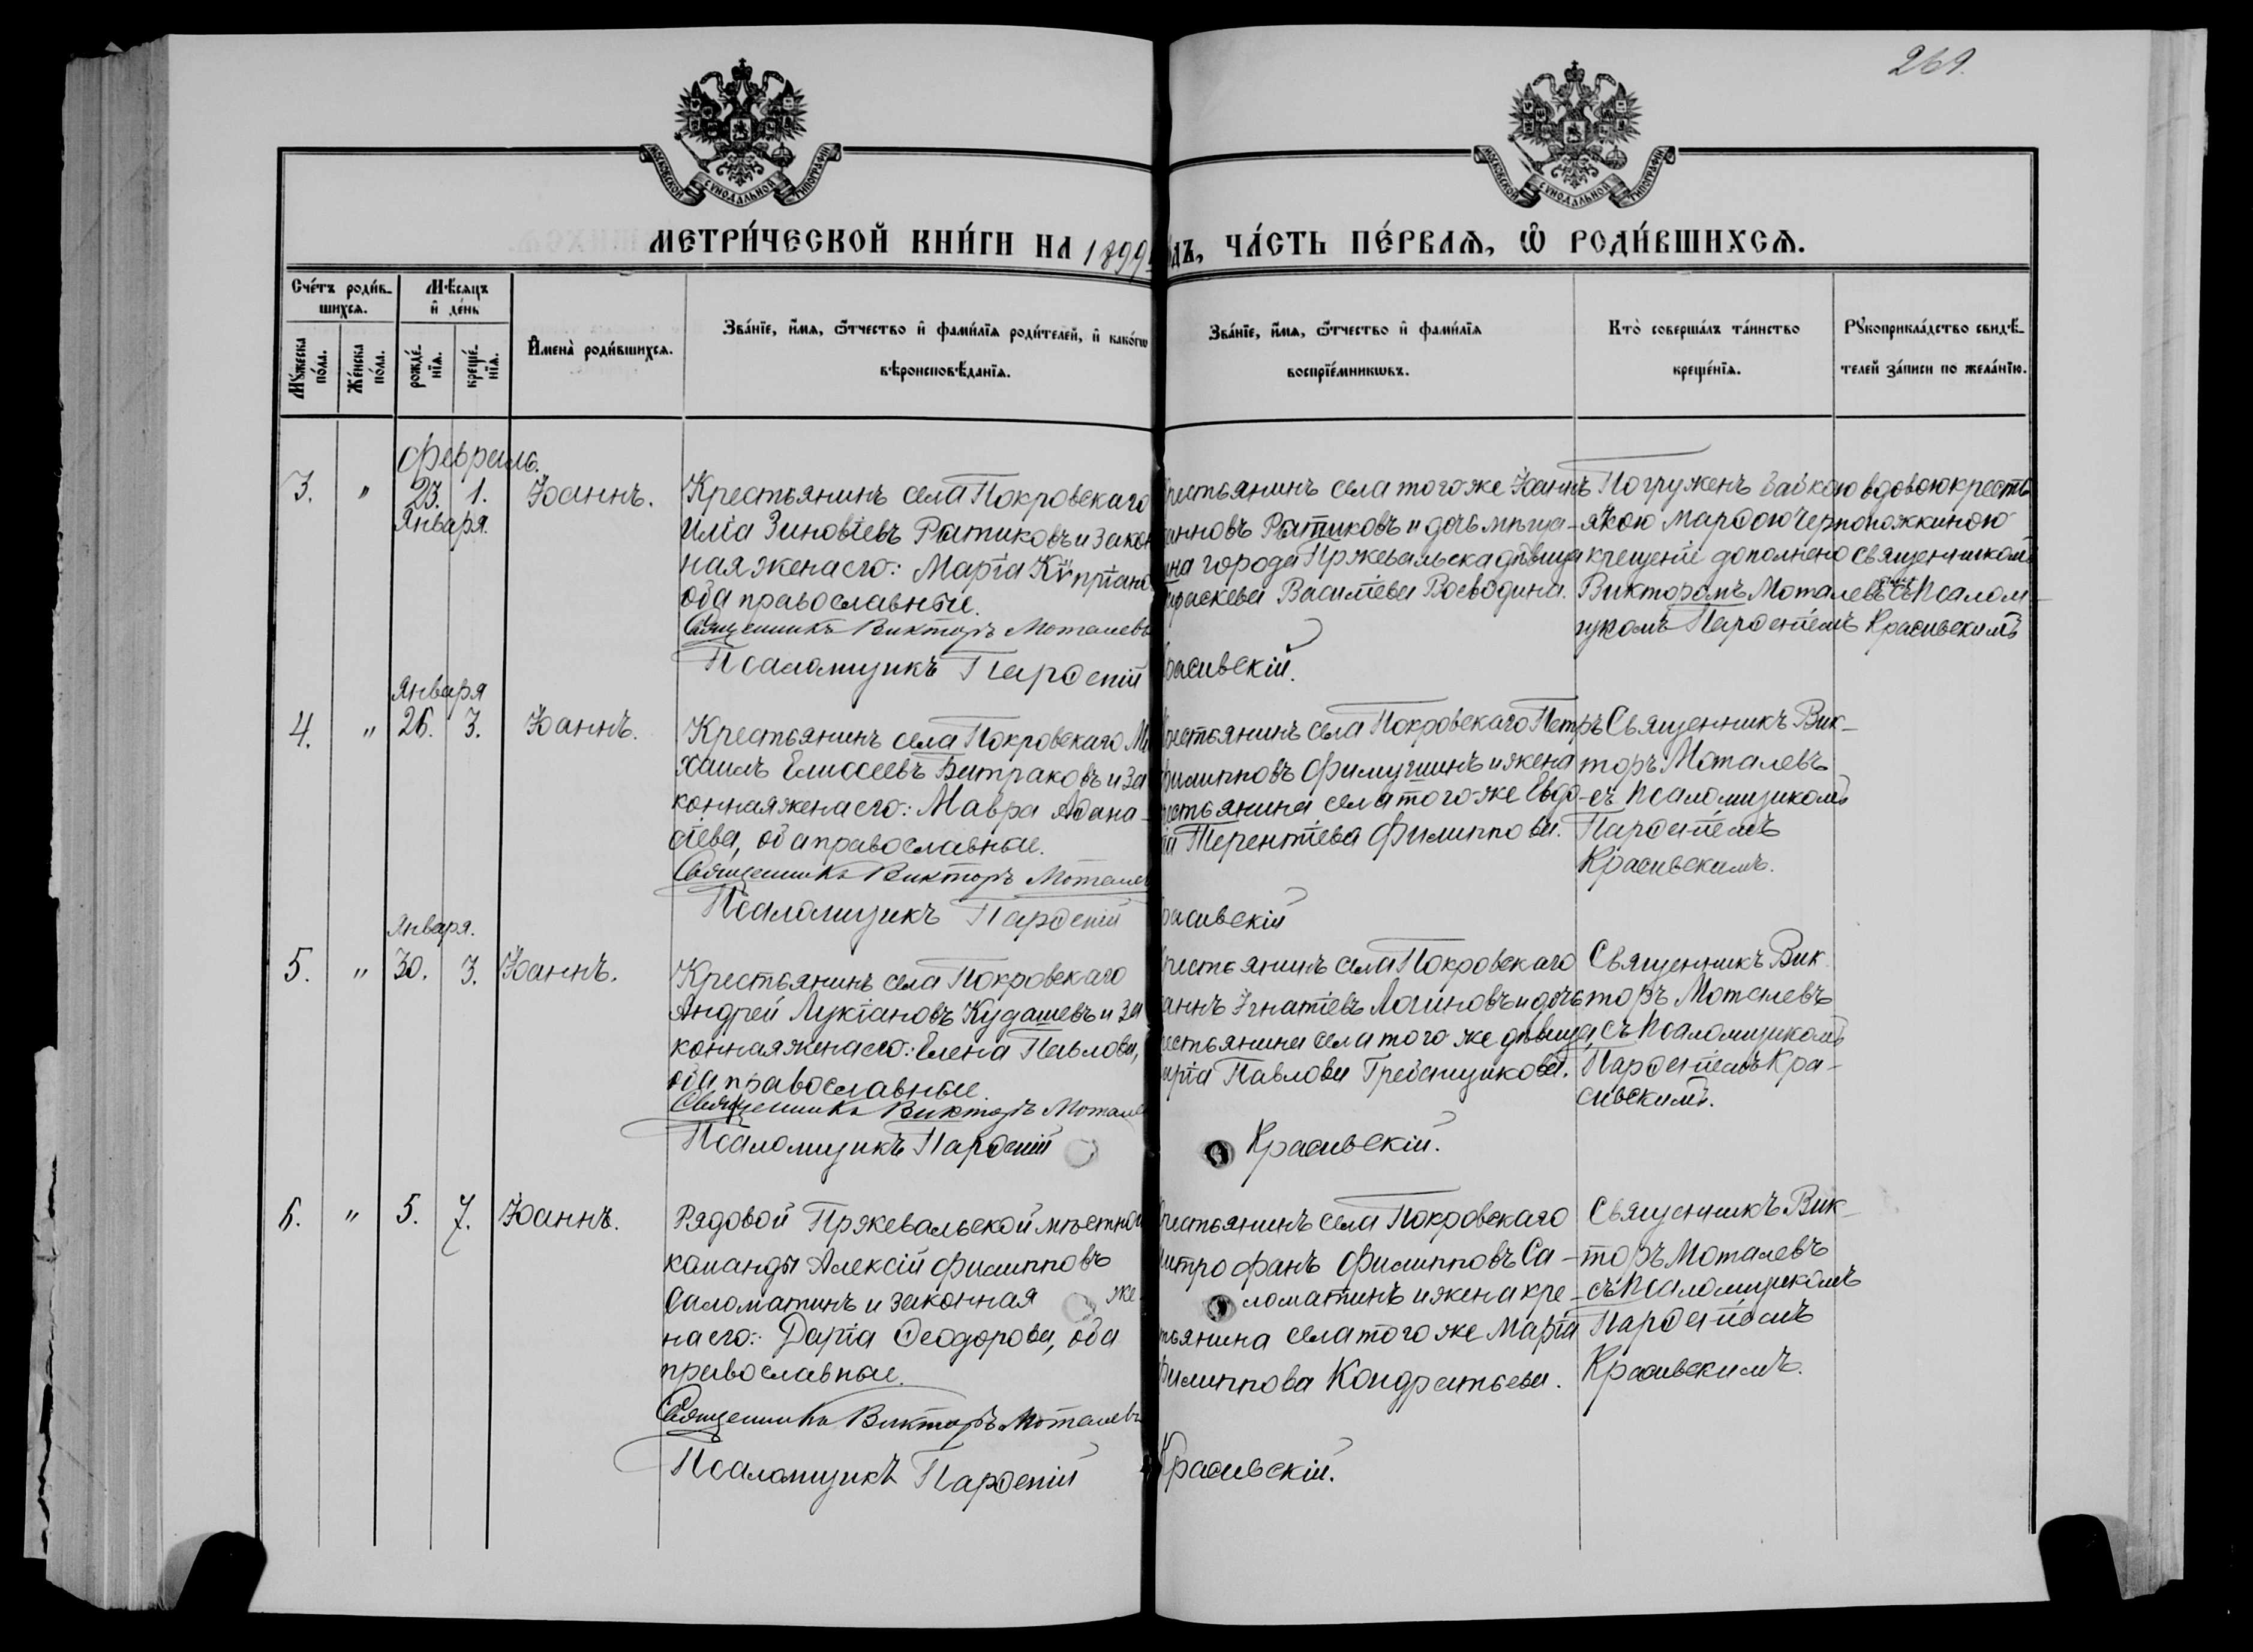 269.
МОСКОВСКОЙ СѴНОДАЛЬНОЙ ТИПОГРАФІИ
МОСКОВСКОЙ СѴНОДАЛЬНОЙ ТИПОГРАФІИ
МЕТРИ́ЧЕСКОЙ КНИ́ГИ НА 1899 ЧА́СТЬ ПЕ́РВАЯ, Ѡ РОДИ́ВШИХСЯ.
Сче́тъ роди́в-
шихся.
Мѣ́сяцъ
и҆ де́нь
Мꙋ́жеска по́ла.
Же́нска по́ла.
рожде́-нїя.
креще́-нїя.
И҆мена̀ роди́вшихся.
Зва́нїе, и҆́мя, ѻ҆́тчество и҆ фами́лїя роди́телей, и҆ како́гѡ
вѣроисповѣ́данїя.
Зва́нїе, и҆́мя, ѻ҆́тчество и҆ фами́лїя
воспрїе́мникѡвъ.
Кто̀ соверша́лъ та́инство
креще́нїя.
Рꙋкоприкла́дство свидѣ́-
телей за́писи по жела́нїю.
Февраль.
3. " 23. 1. Іоаннъ.
Января.
Крестьянинъ села Покровскаго
Илія Зиновіевъ Ратиковъ и закон
ная жена его: Марія Кѵпріано
оба православные.
Священникъ Викторъ Моталевъ
Псаломщикъ Парѳеній
рестьянинъ села того же Іоаннъ
анновъ Ратиковъ и дочь мѣща-
ина города Пржевальска дѣвица
араскева Василіева Воеводина.
расивскій.
Погруженъ бабкою вдовою кресть
янкою Марѳою Черноножкиною
крещеніе дополнено священникомъ
Викторомъ Моталевымъ съ Псалом
щикомъ Парѳеніемъ Красивскимъ
Января
4. " 26. 3. Іоаннъ.
Крестьянинъ села Покровскаго Ми
хаилъ Елисеевъ Битраковъ и за
конная жена его: Мавра Аѳана-
сіева, оба православные.
Священникъ Викторъ Моталев
Псаломщикъ Парѳеній
рестьянинъ села Покровскаго Петръ
Филипповъ Филицшинъ и жена
рестьянина села того-же Евдо-
ія Терентіева Филиппова.
расивскій
Священникъ Вик-
торъ Моталевъ
съ Псаломщикомъ
Парѳеніемъ
Красивскимъ.
Января.
5. " 30. 3. Іоаннъ.
Крестьянинъ села Покровскаго
Андрей Лукіановъ Кудашевъ и за
конная жена его: Елена Павлова,
оба православные.
Священникъ Викторъ Моталев
Псаломщикъ Парѳеній
рестьянинъ села Покровскаго
аннъ Игнатіевъ Логиновъ и дочь
естьянина села того же дѣвица
арія Павлова Гребенщикова.
Красивскій.
Священникъ Вик
торъ Моталевъ
съ Псаломщикомъ
Парѳеніемъ Кра-
сивскимъ.
6. " 5. 7. Іоаннъ.
Рядовой Пржевальской мѣстной
команды Алексій Филипповъ
Саломатинъ и законная же-
на его: Дарія Ѳеодорова, оба
православные.
Священникъ Викторъ Моталевъ
Псаломщикъ Парѳеній
рестьянинъ села Покровскаго
итрофанъ Филипповъ Са-
ломатинъ и жена кре-
тьянина села того же Марія
Филиппова Кондратьева.
Красивскій.
Священникъ Вик-
торъ Моталевъ
съ Псаломщикомъ
Парѳеніемъ
Красивскимъ.